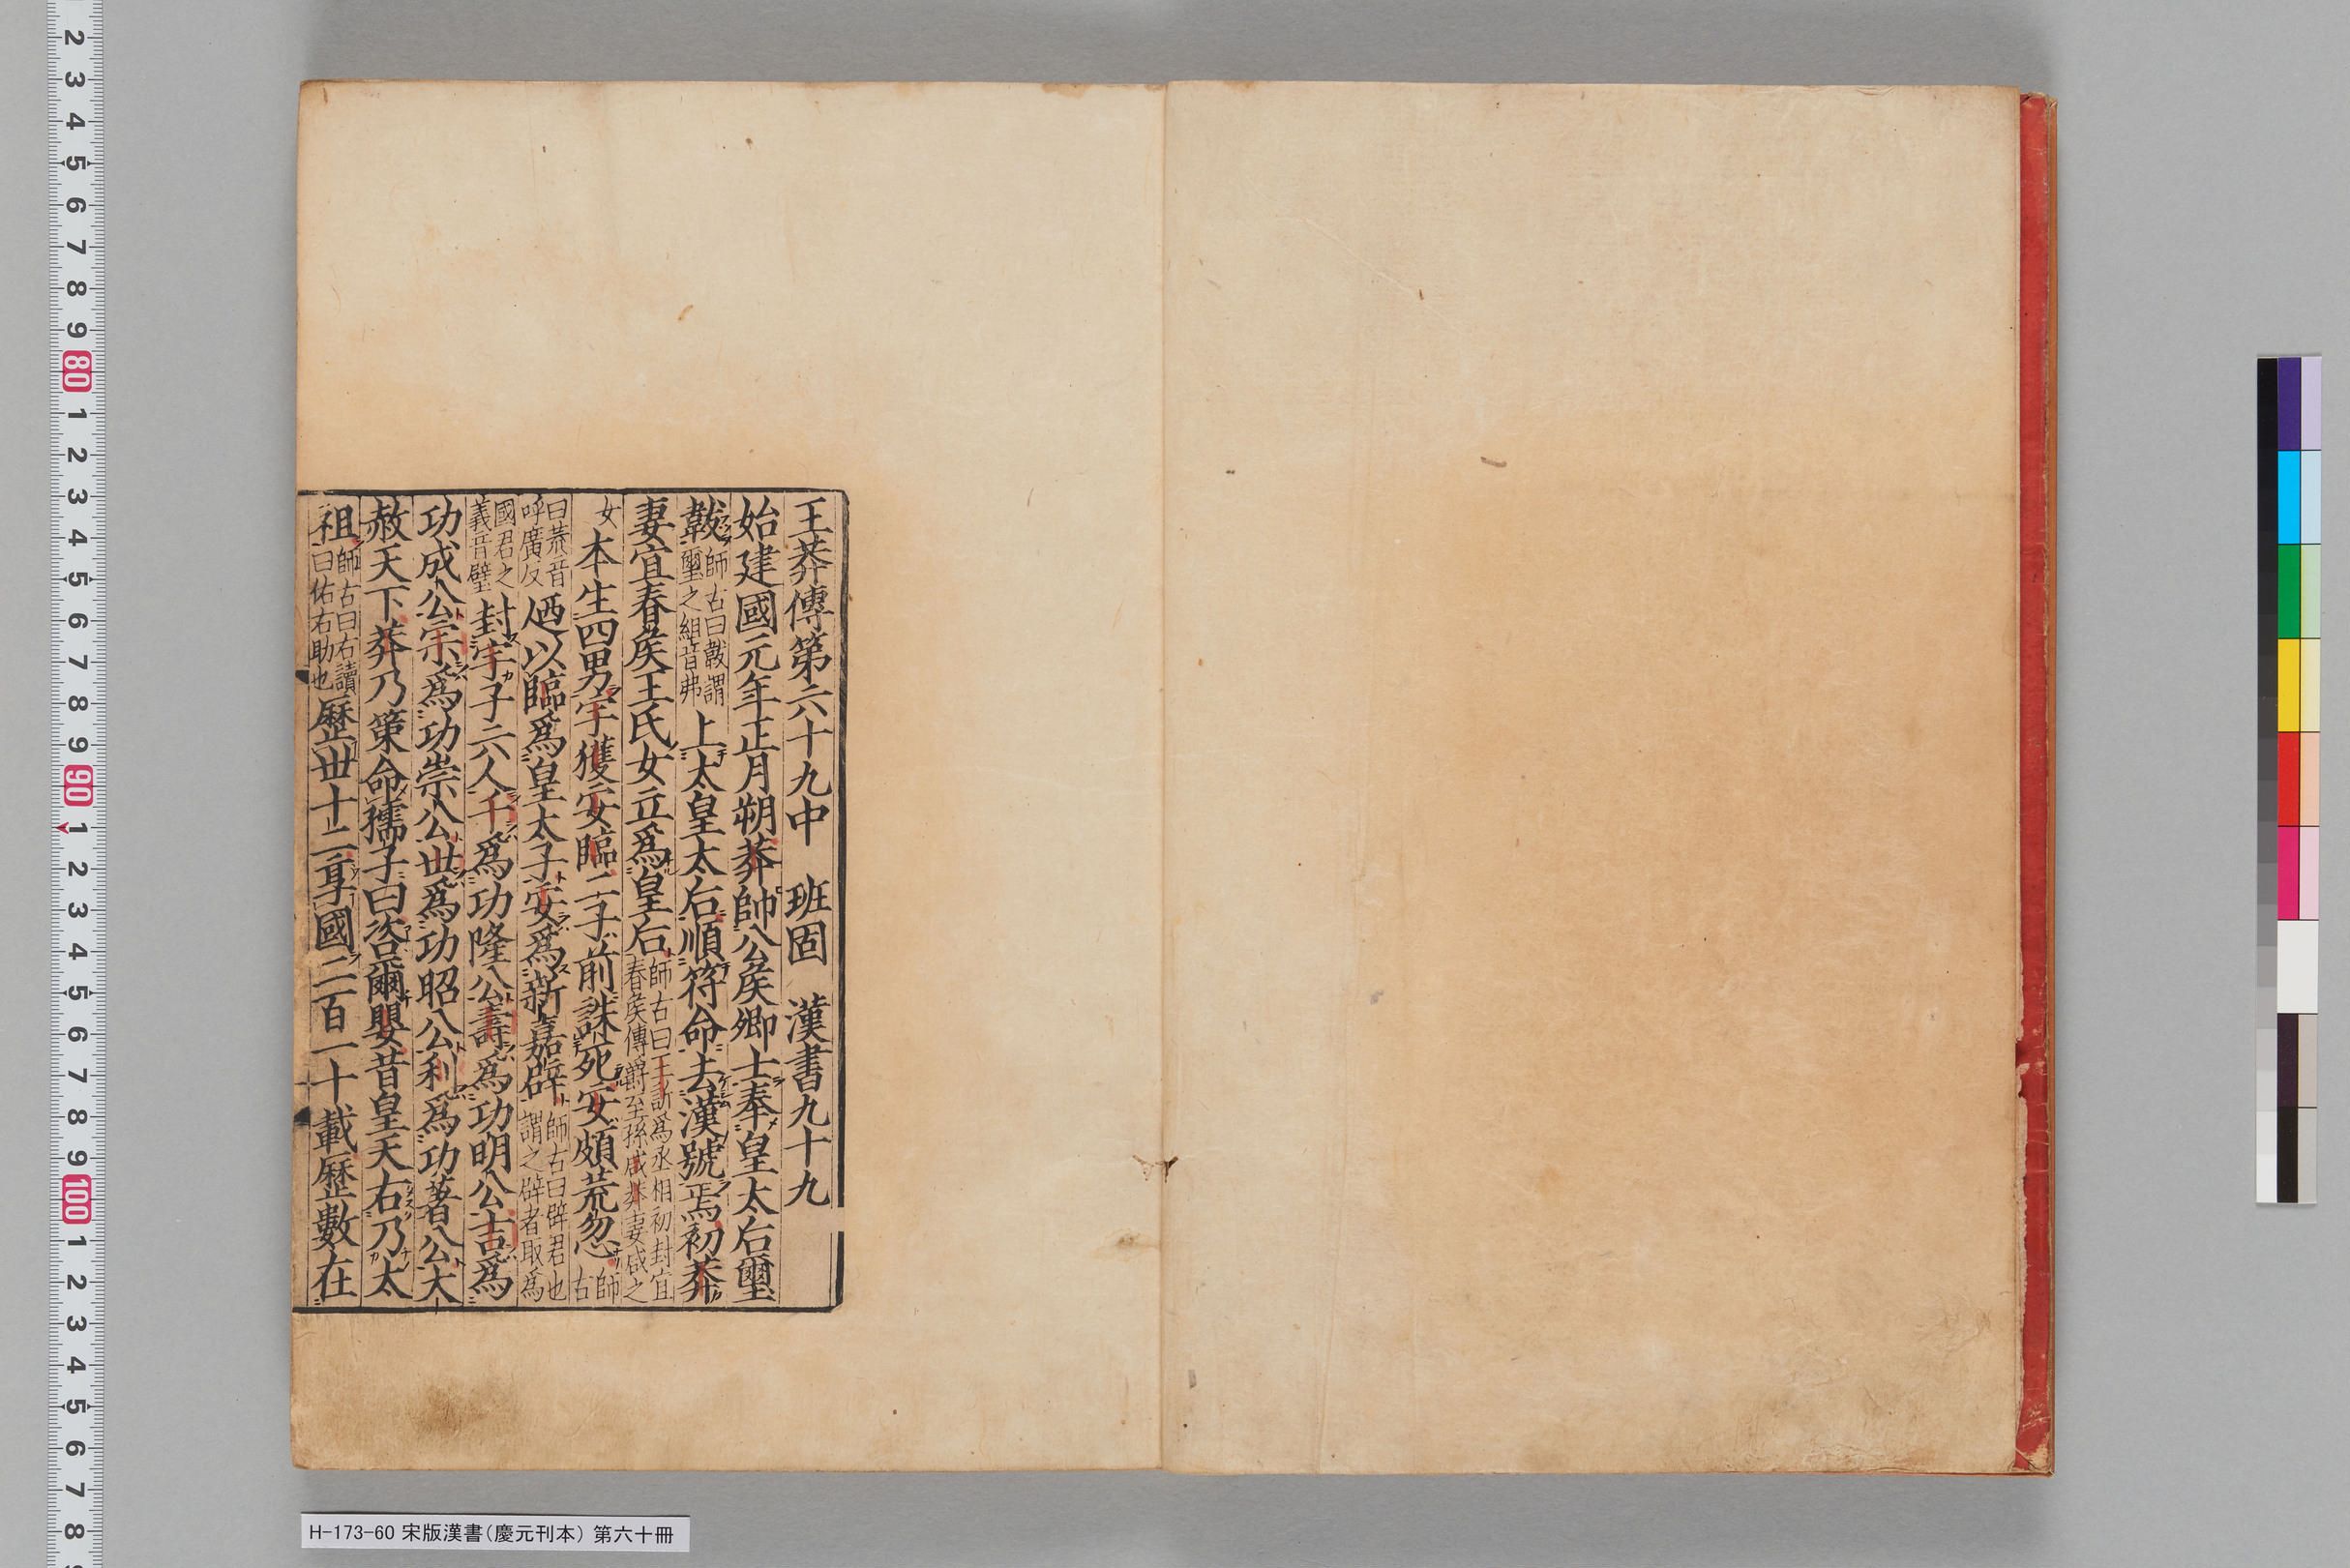 王莽傳第六十九中 班固 漢書九十九
始建國元年正月朔莽帥公侯卿士奉皇太后璽
韍師古曰韍謂璽之組音弗上太皇太后順符命去漢號焉初莽
妻宜春侯王氏女立爲皇后師古曰王訢爲丞相初封宜春侯傳爵至孫咸莽妻咸之
女本生四男宇獲安臨二子前誅死安頗荒忽師古
曰荒音呼廣反廼以臨爲皇太子安爲新嘉辟師古曰辟君也謂之辟者取爲
國君之義音壁封宇子六人千爲功隆公壽爲功明公吉爲
功成公宗爲功崇公世爲功昭公利爲功著公大
赦天下莽乃策命孺子曰咨爾嬰昔皇天右乃太
祖師古曰右讀曰佑右助也歷世十二享國二百一十載歷數在
H-173-60 宋版漢書(慶元刊本) 第六十冊